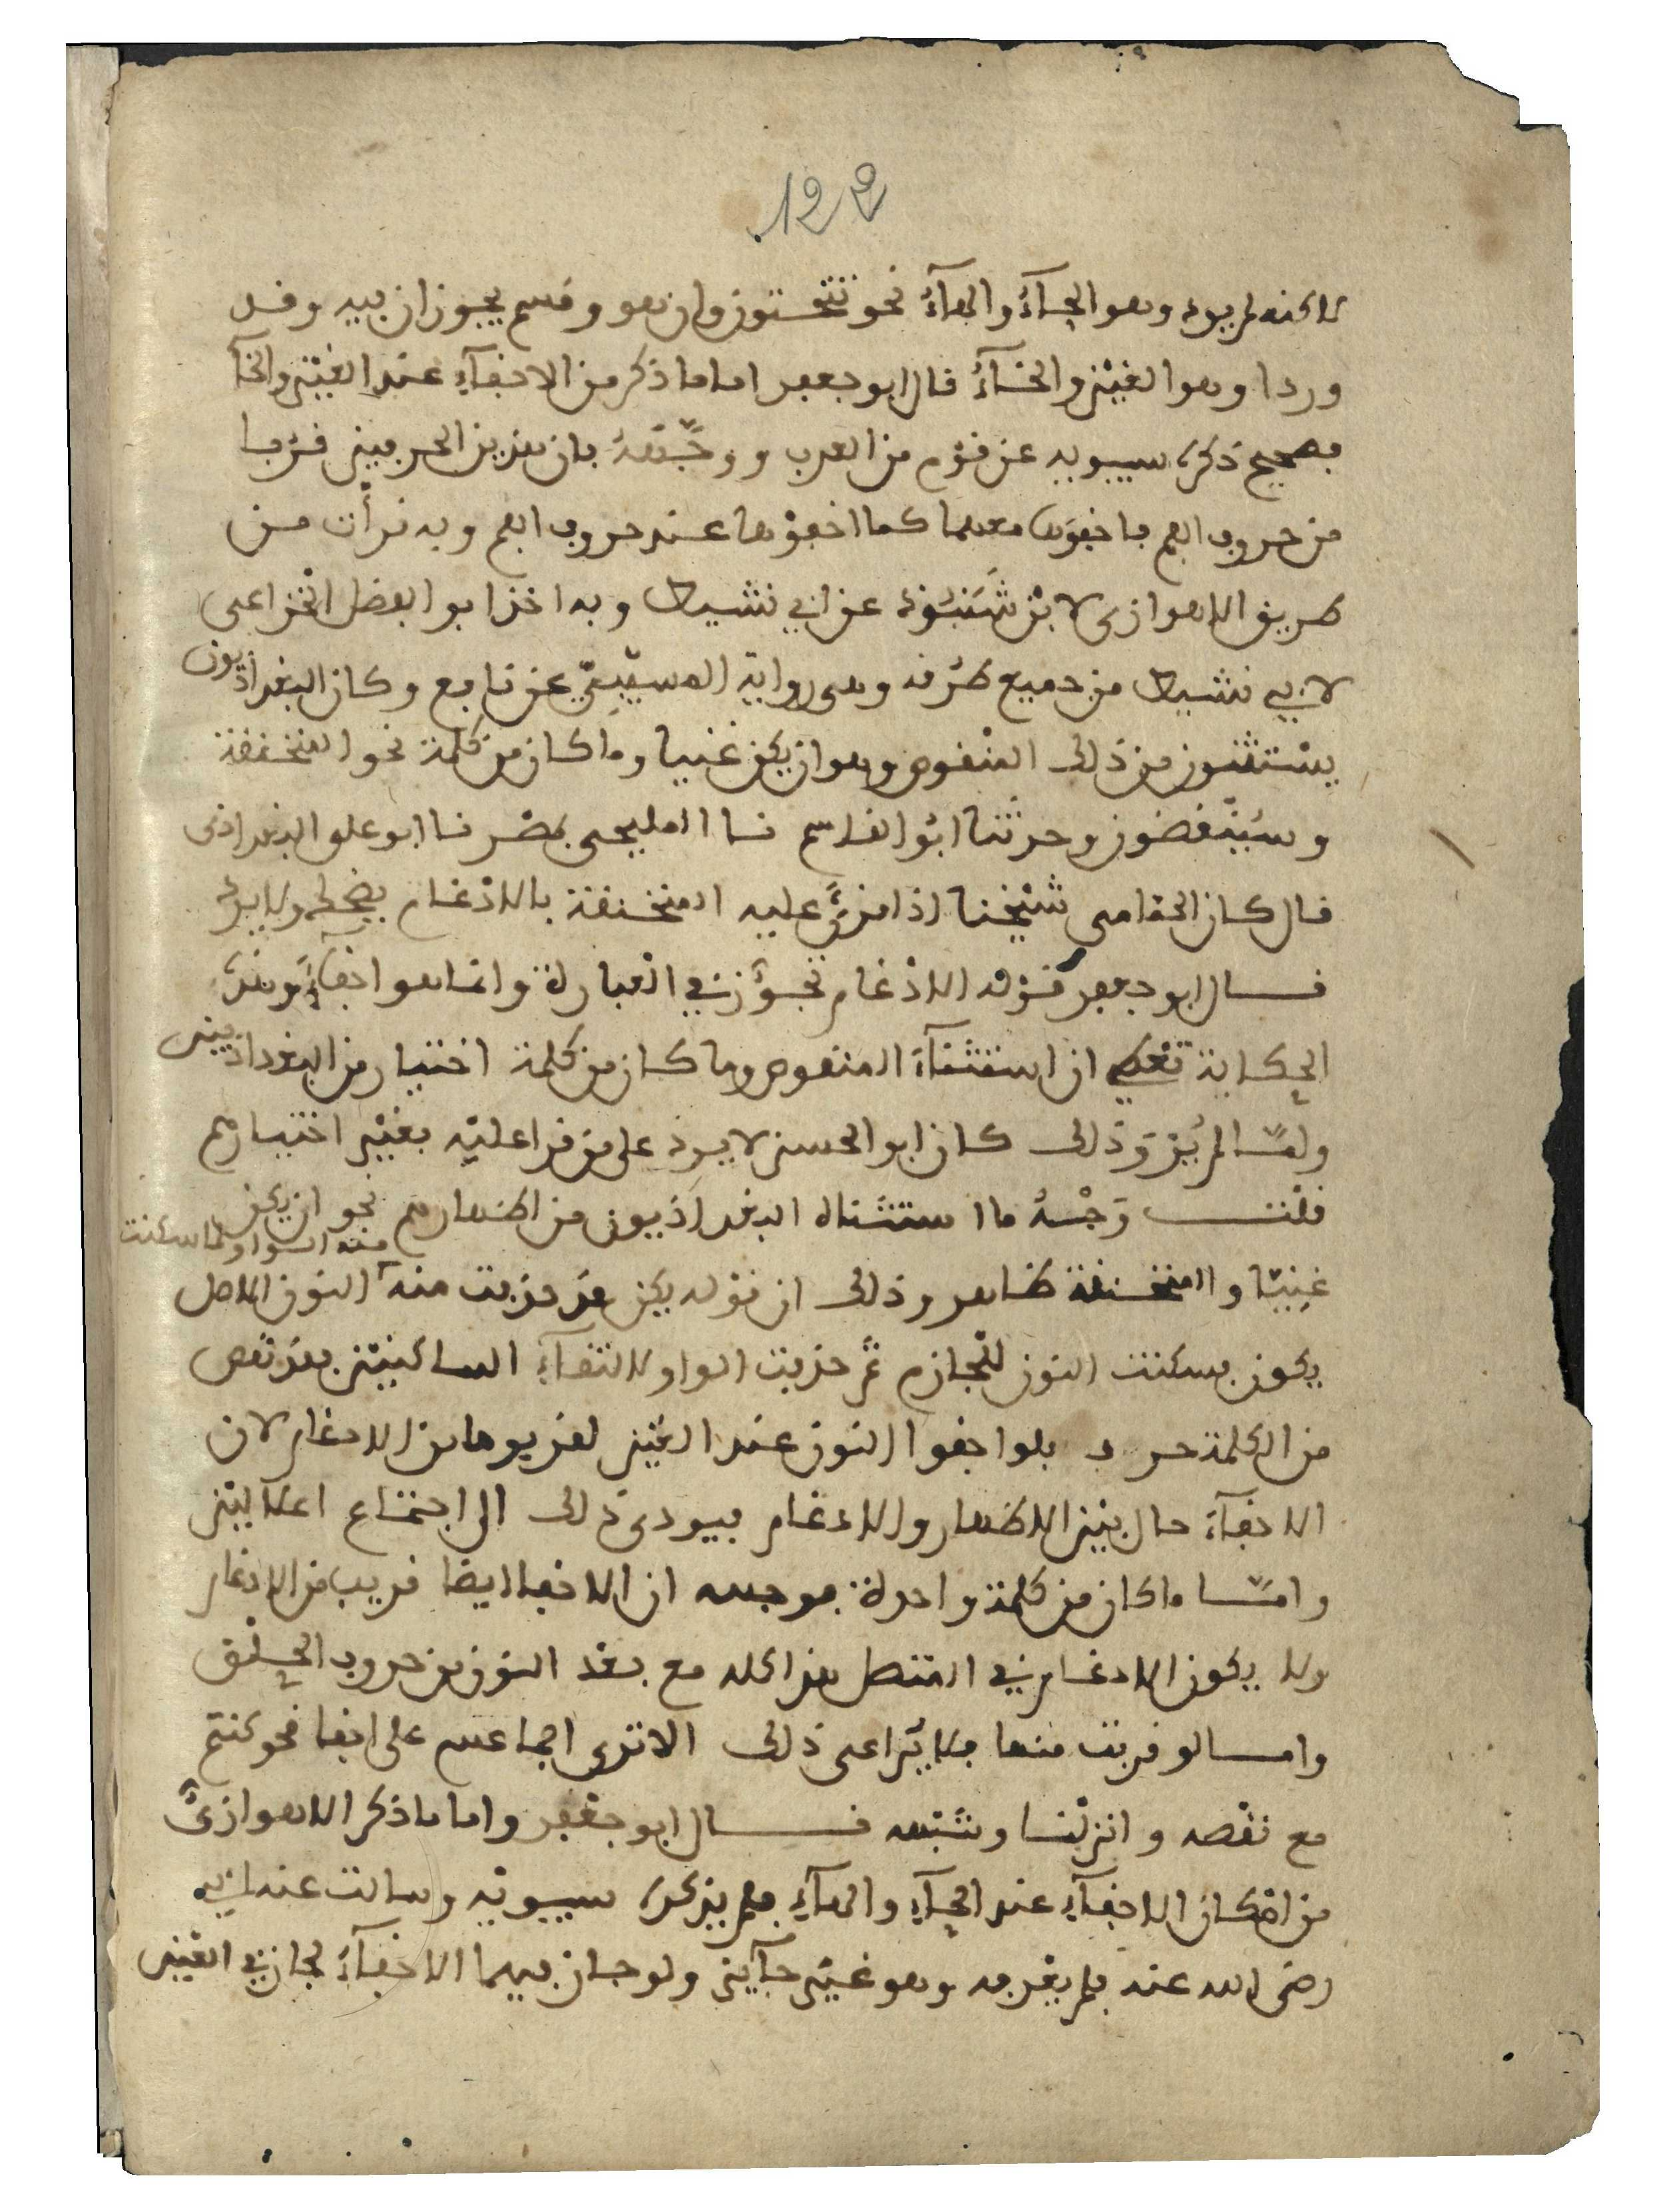 122
لاكنه لم يرد وهو الحاءُ والهاءُ نحو تنحتون وان هو وقسم يجوزان فيه وقد
وردا وهو الغيْن والخاءُ قال ابو جعفر اما ما ذكر من الاخفاءِ عند الغيْن والخاءِ
فصحيح ذكره سيبويه عن قوْم من العرب ووجَّهَهُ بان هذين الحرفين قَرُبا
من حروف الفم فاخفوْها معهما كما اخفوْها عند حروف الفم وبه قرأت من
طريق الاهوازى لابْن شَنَبُوذ عن ابي نشيط وبه اخذ ابو الفضل الخزاعى
لابي نشيط من جميع طُرُقه وهى رواية المسيّبيّ عن نافع وكان البغداذيون
يسْتثنون من ذلك المنْقوص وهو ان يكن غنيا وما كان من كلمة نحو المنخنقة
وسَيُنْغضون وحدثنا ابُو القاسم نا المليحى بمصْر نا ابو على البغداذى
قال كان الحمامى شيْخنا اذا قُرِئَ عليه المنخنقة بالاذغام يضحك ولا يرد
قال ابو جعفر قوْله الادْغام تجوُّز في العبارة وانما هو اخفاءٌ وهذه
الحكاية تعْطي ان استثناءَ المنقوص وما كان من كلمة اختيار من البغداذيين
ولمّا لم يُرْوَ ذلك كان ابو الحسن لا يرد على من قرا عليْه بغيْر اختيارهم
قلْت وَجْهُ ما استثناه البغداذيون من اظهارهم نحو ان يكن
غنِيّا والمنخنقة ظاهر وذلك ان قوْله يكن قد حذفت منه الواو لما سكنت النون الاصل
يكون فسكنت النون للْجازم ثم حذفت الواو لالتقاءِ الساكنيْن فقدْ نقص
من الكلمة حرف فلو اخفوا النون عند الغيْن لقربوها من الادغام لان
الاخفاءَ حال بيْن الاظهار والادغام فيودى ذلك الى اجتماع اعلاليْن
وامّا ما كان من كلمة واحدة فوجهه ان الاخفا ايضا قريب من الادغام
ولا يكون الادغام في المتصل هذا كله مع بعْد النون من حروف الحلْق
وامّا لو قربت منها فلا يُراعى ذلك الا ترى اجماعهم على اخفا نحو كنتم
مع نقْصه وانزلْنا وشبْهه قال ابو جعْفر واما ما ذكر الاهوازىُّ
من امْكان الاخفاءِ عند الحاءِ والهاءِ فلم يذكره سيبويْه وسالت عنه ابي
رضى الله عنه فلم يعْرفه وهو غيْر جآيز ولو جاز فيهما الاخفاءُ لجاز في العيْن